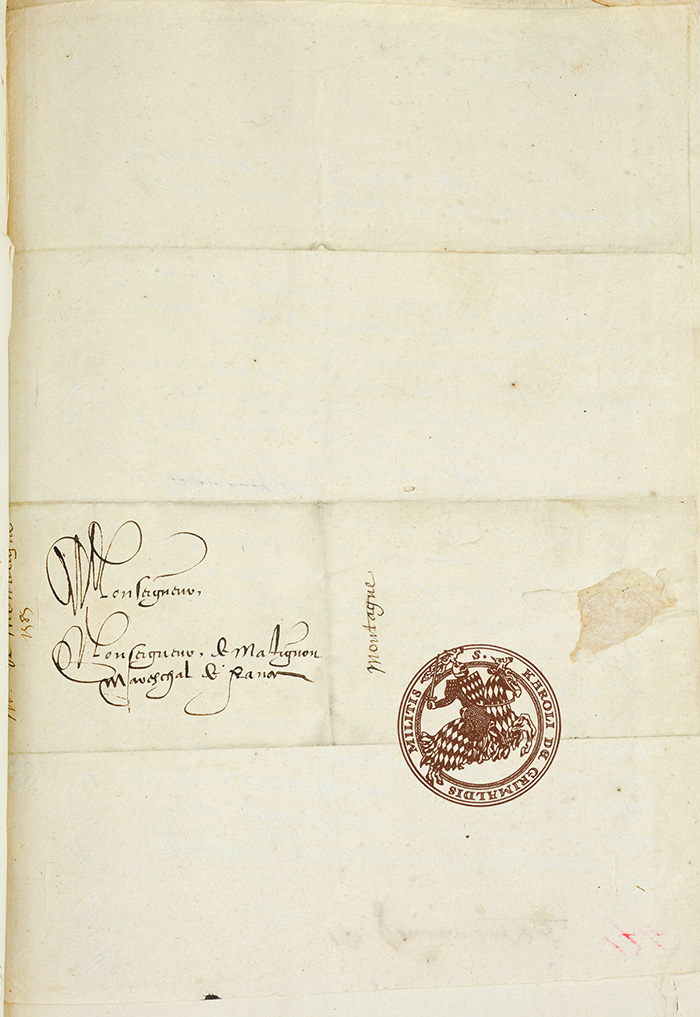 Monseigneur,
Monseigneur, de Matignon
Mareschal de france
Montagne
1585
S. KAROLI DE GRIMALDIS MILITIS